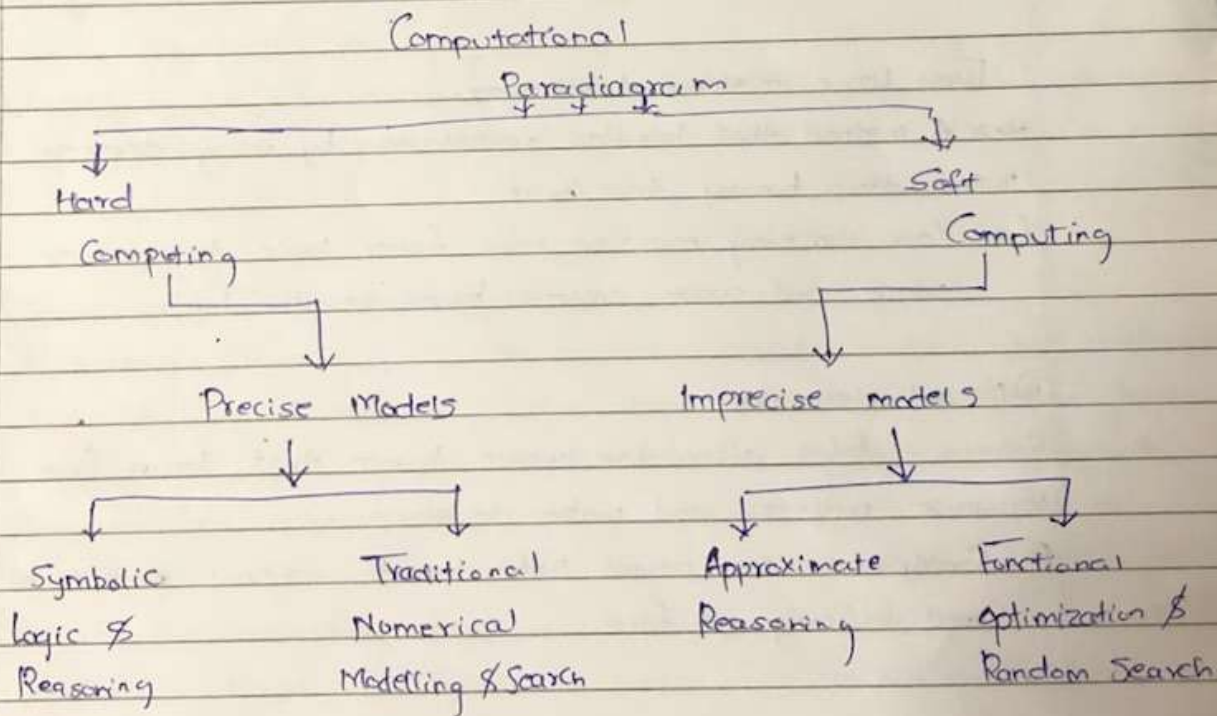 Computational
Paradiagram
Hard
Computing
Soft
Computing
Precise Models
Imprecise models
Symbolic
Logic &
Reasoning
Traditional
Numerical
Modelling & Search
Approximate
Reasoning
Functional
optimization &
Random Search